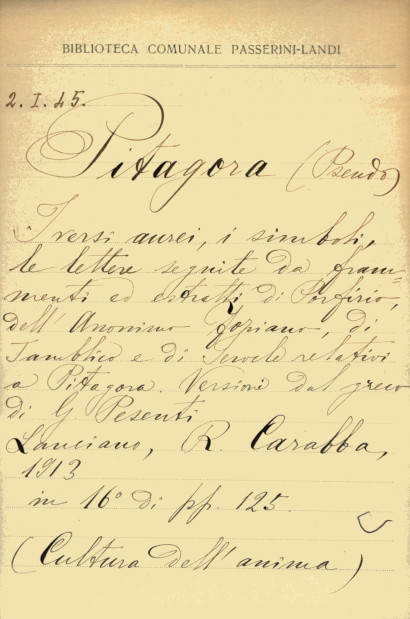 BIBLIOTECA COMUNALE PASSERINI-LANDI
2. I. 45.
Pitagora (Pseudo)
I versi aurei, i simboli,
le lettere seguite da fram=
menti ed estratti di Porfirio,
dell'Anonimo Foziano, di
Iamblico e di Ierocle relativi
a Pitagora. Versione dal greco
di G Pesenti
Lanciano, R. Carabba,
1913
in 16° di pp. 125.
(Cultura dell'anima)